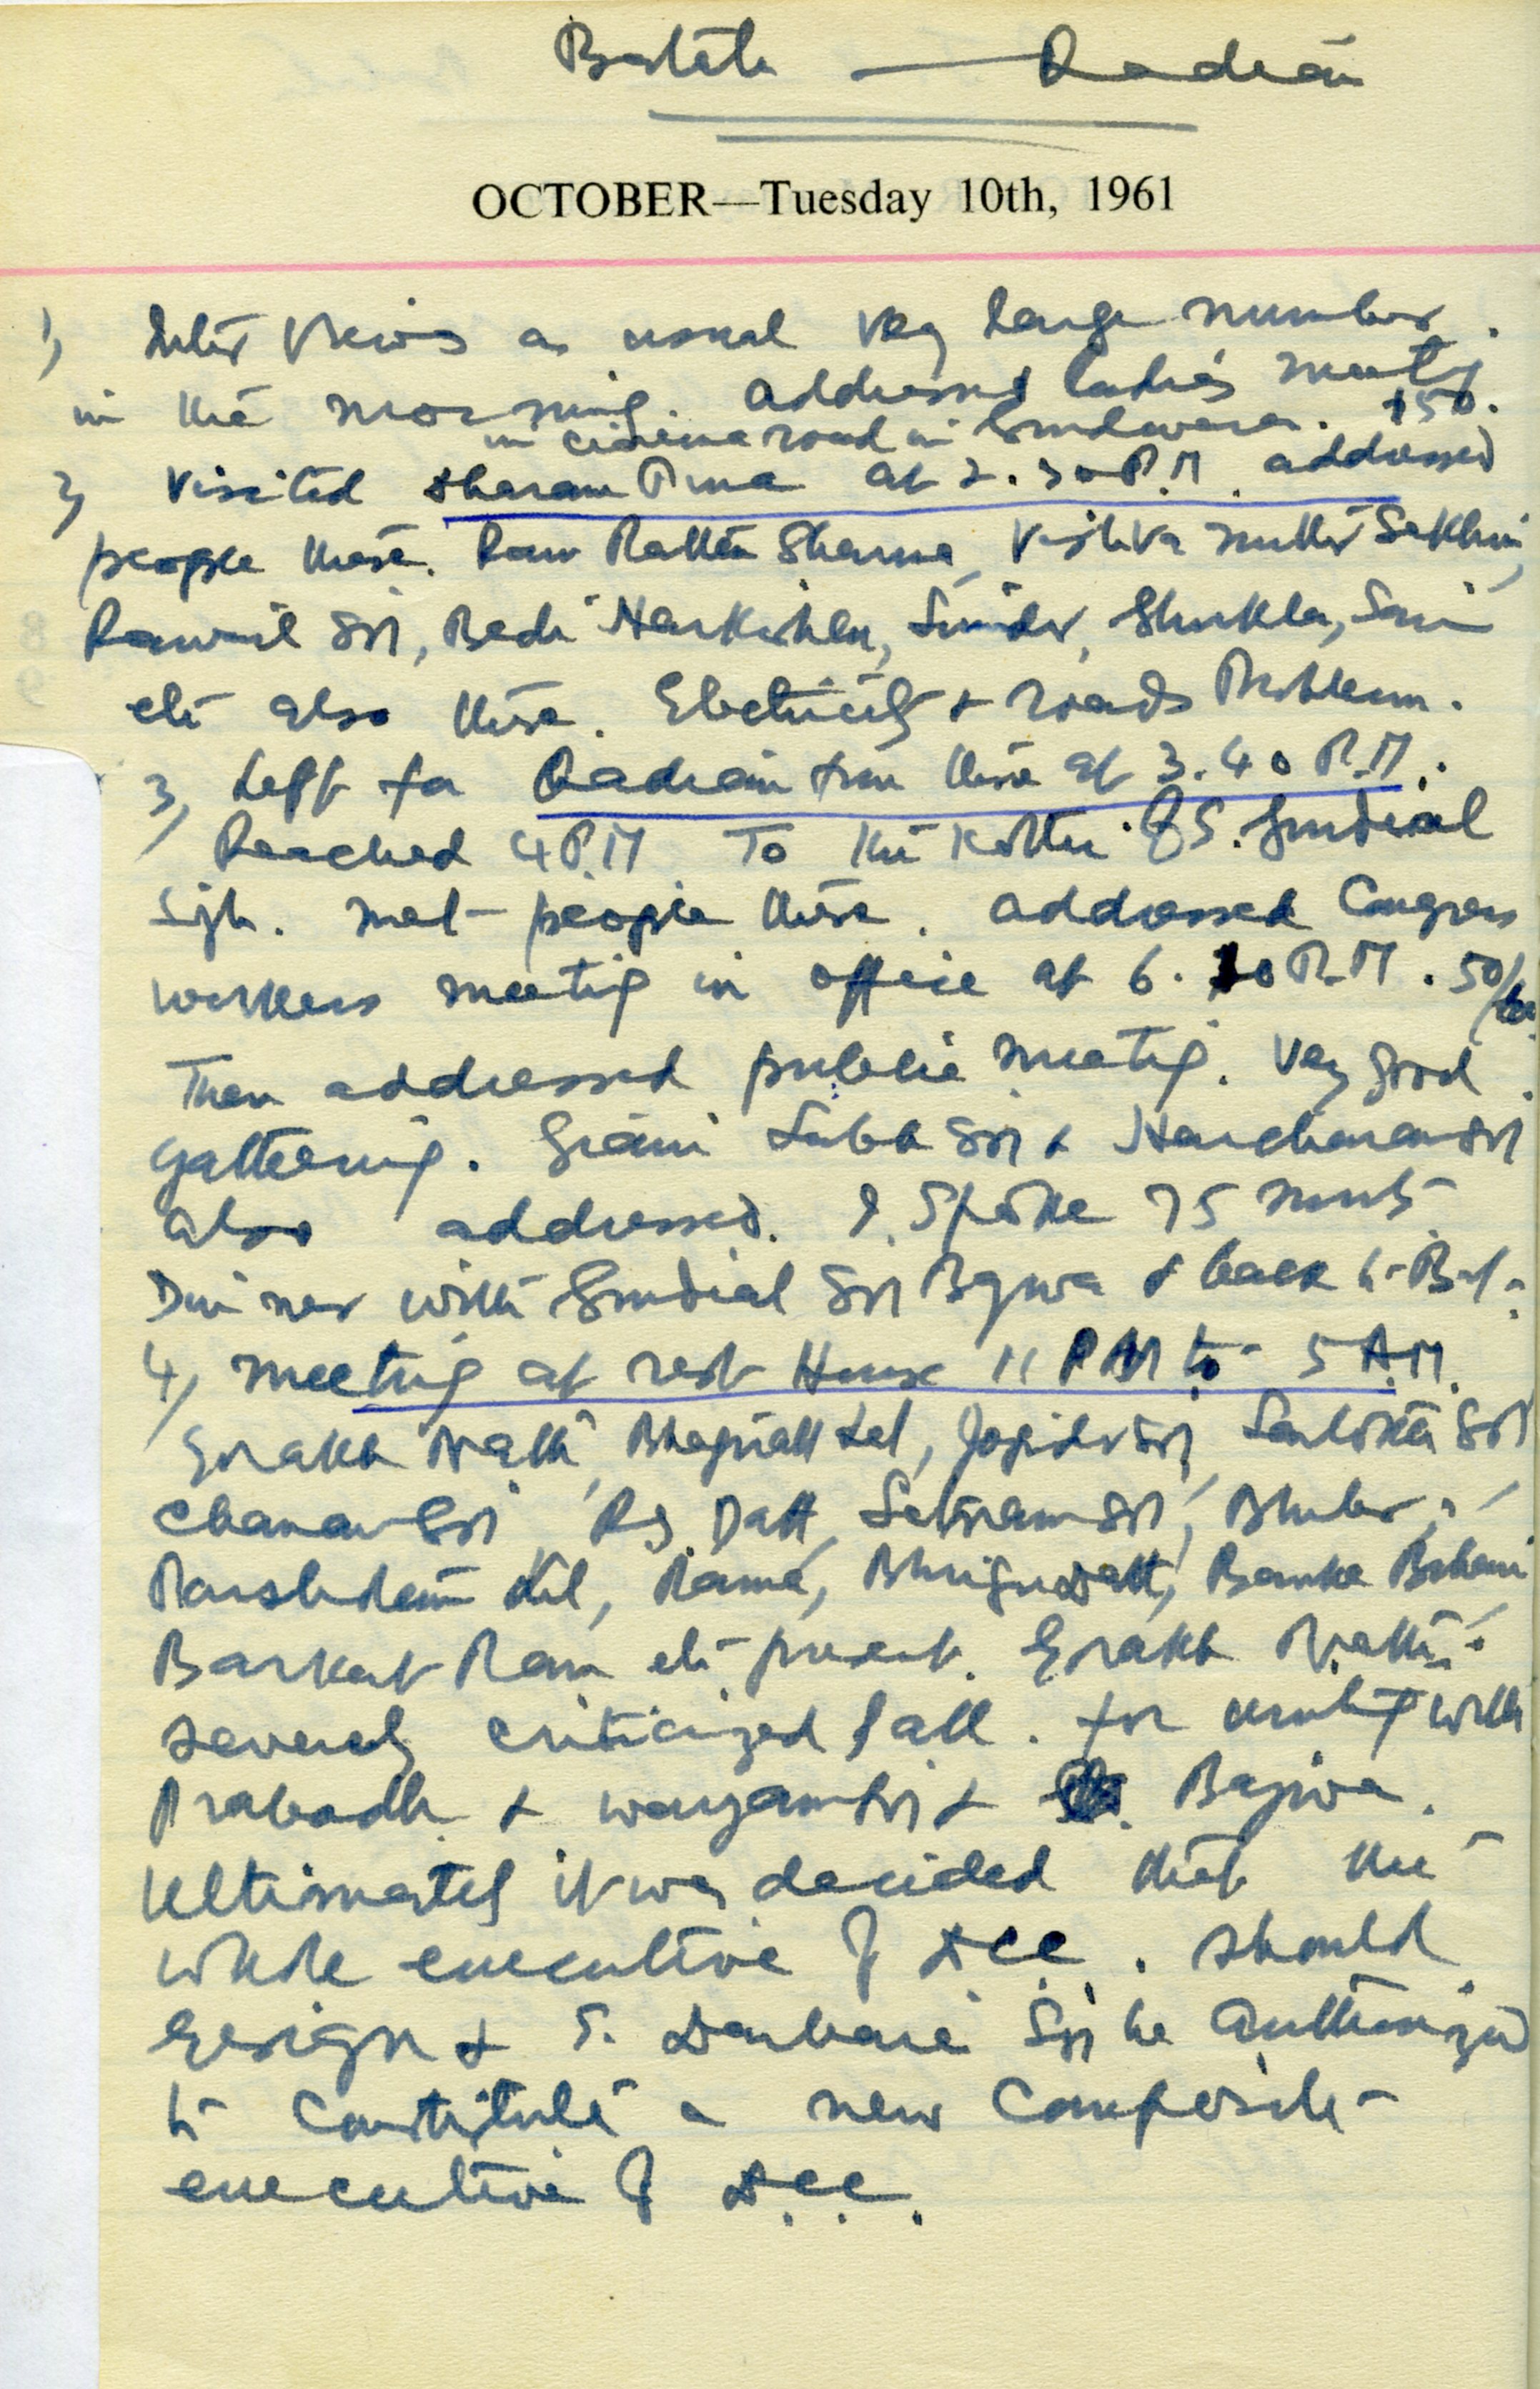 Batala — Qadian
OCTOBER—Tuesday 10th, 1961
1) Inter Views as usual Very large number.
in the morning. addressed ladies meeting
in cinema road in Gurdwara. 150.
2) Visited at 2.30 P.M. addressed
people there. Ram Rattan Sharma, Vishva Mitter Sekhri,
Rawail Sn, Bedi Harkishen, Shukla, Saini
etc also there. Electricity & roads Problem.
3) Left for Qadian from there at 3.40 P.M.
Reached 4 P.M To the Kothi of S. Gurdial
Sigh. met people there. addressed Congress
workers meeting in office at 6. P.M. 50/60
Then addressed public meeting. Very good
gathering. Giani Labh Sn & Harcharan Sn
also addressed. I spoke 75 minuts
Dinner with Gurdial Sn Bajwa & back to
4) meeting at rest House 11 PM to 5 A.M.
Gorakh Nath, Bhagirath Lal, Jogider Sn, Santokh Sn
Chanan Sn, Raj Datt, Satnam Sn,
Lal, Bhrigu Datt, Banke Behari
Barkat Ram etc present. Gorakh Nath
severely criticized of all. for uniting with
Prabodh. & Waryam Sn & Bajwa.
Ultimately it was decided that the
whole executive of D.C.C. should
resign & S. Darbara Sn be authorized
to Constitute a new Composite
executive of D.C.C.